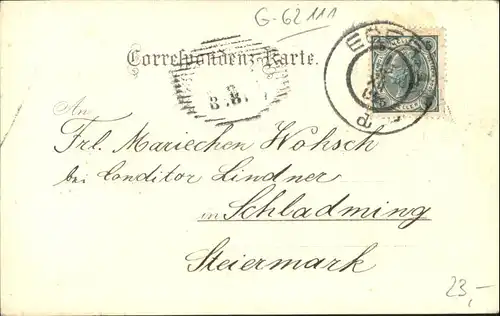 G-62111
Correspondenz-Karte.
8. 8.
An
Frl. Mariechen Wohsch
bei Conditor Lindner
in Schladming
Steiermark
23,-